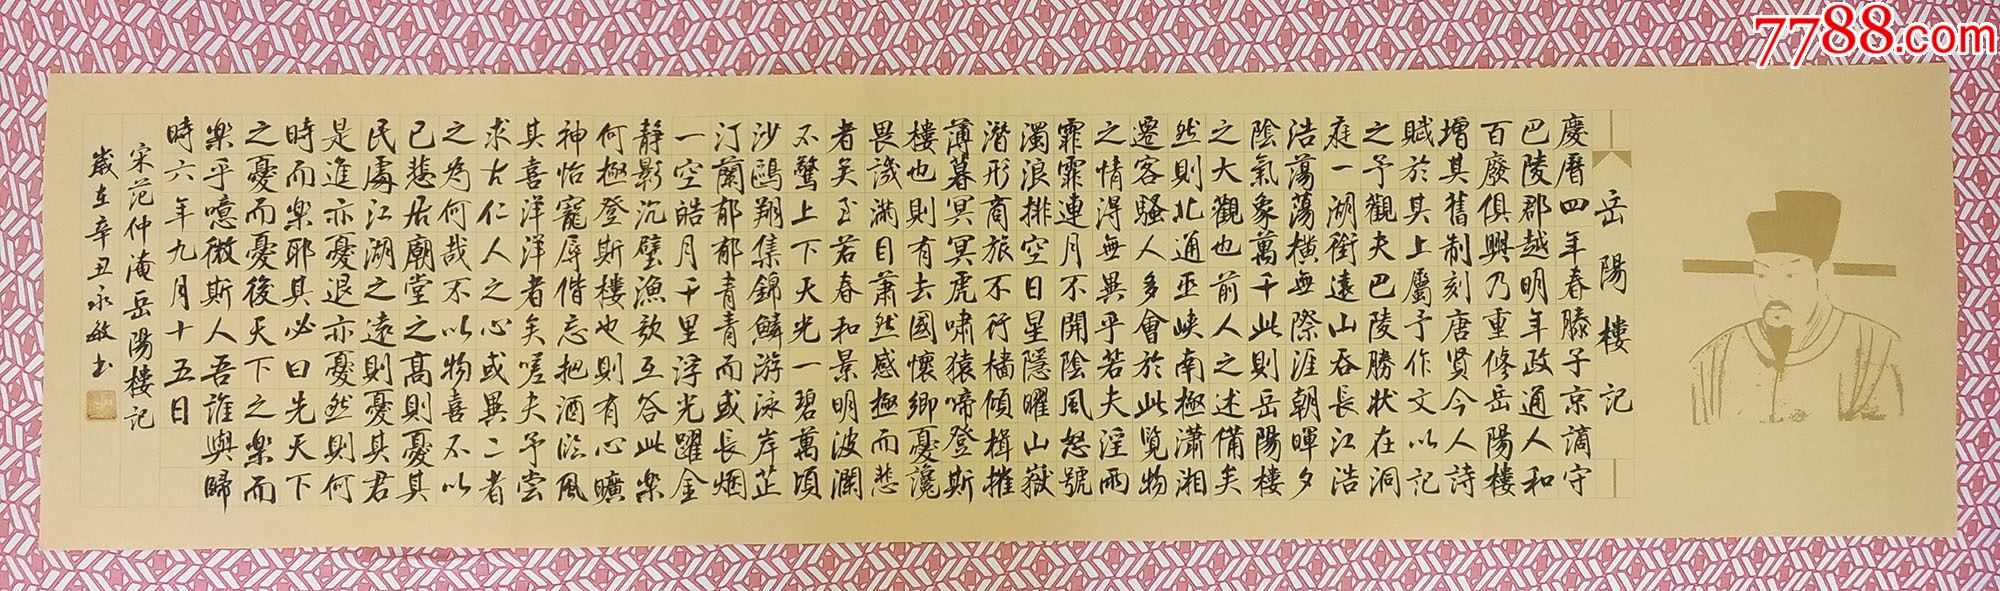 岳陽樓記
慶曆四年春滕子京謫守
巴陵郡越明年政通人和
百廢俱興乃重修岳陽樓
增其舊制刻唐賢今人詩
賦於其上屬予作文以記
之予觀夫巴陵勝狀在洞
庭一湖銜遠山吞長江浩
浩蕩蕩橫無際涯朝暉夕
陰氣象萬千此則岳陽樓
之大觀也前人之述備矣
然則北通巫峽南極瀟湘
遷客騷人多會於此覽物
之情得無異乎若夫淫雨
霏霏連月不開陰風怒號
濁浪排空日星隱曜山嶽
潛形商旅不行檣傾楫摧
薄暮冥冥虎嘯猿啼登斯
樓也則有去國懷鄉憂讒
畏譏滿目蕭然感極而悲
者矣至若春和景明波瀾
不驚上下天光一碧萬頃
沙鷗翔集錦鱗游泳岸芷
汀蘭郁郁青青而或長烟
一空皓月千里浮光躍金
靜影沉璧漁歌互答此樂
何極登斯樓也則有心曠
神怡寵辱偕忘把酒臨風
其喜洋洋者矣嗟夫予嘗
求古仁人之心或異二者
之為何哉不以物喜不以
己悲居廟堂之高則憂其
民處江湖之遠則憂其君
是進亦憂退亦憂然則何
時而樂耶其必曰先天下
之憂而憂後天下之樂而
樂乎噫微斯人吾誰與歸
時六年九月十五日
宋范仲淹岳陽樓記
歲在辛丑永敏書
7788.com